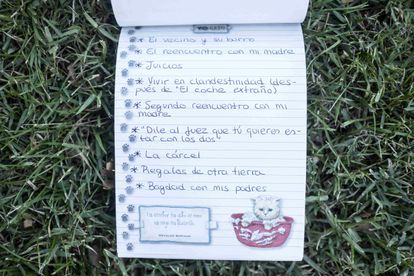 * El vecino y su burro
* El reencuentro con mi madre
* Juicios
* Vivir en clandestinidad (des-
pués de "El coche extraño)
* Segundo reencuentro con mi
madre
* "Dile al juez que tú quieres es-
tar con los dos"
* La cárcel
* Regalos de otra tierra
* Bagdad con mis padres